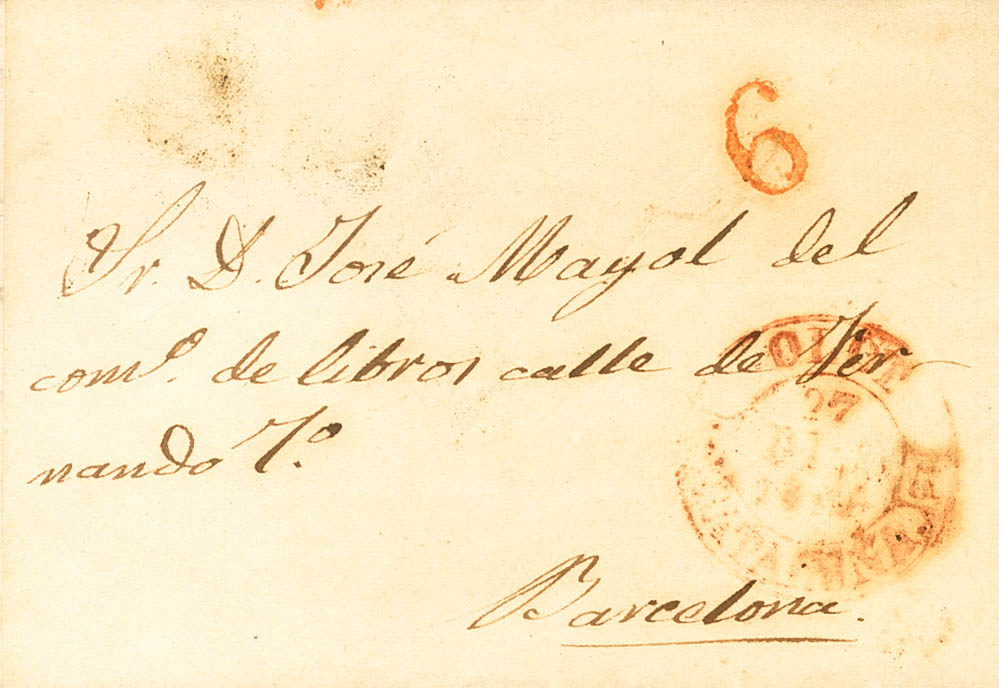 6
Sr. D. José Mayol del
comº. de libros calle de Fer-
nando 7.º
Barcelona.
27